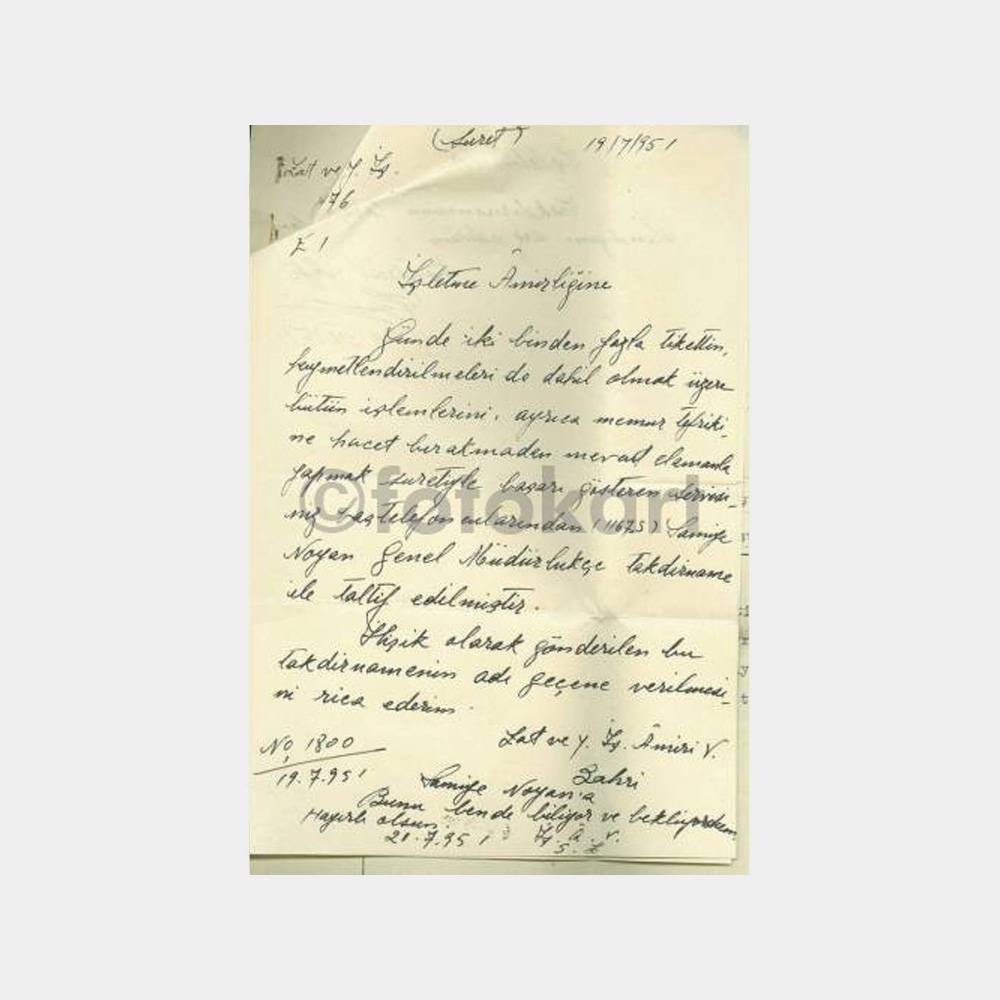 (Suret) 19/7/951
Zat ve Y. İş.
476
E 1
İşletme Âmirliğine
Günde iki binden fazla tikettin,
kıymetlendirilmeleri de dahil olmak üzere
bütün işlemlerini, ayrıca memur tefriki-
ne hacet bırakmadan mevcut elemanla
yapmak suretiyle başarı gösteren servisi-
niz baştelefoncularından (11675) Samiye
Noyan Genel Müdürlükçe takdirname
ile taltif edilmiştir.
İlişik olarak gönderilen bu
takdirnamenin adı geçene verilmesi-
ni rica ederim.
Zat ve Y. İş. Âmiri V.
No, 1800
19.7.951
Samiye Noyan'a
Bunu bende biliyor ve bekliyordum
Hayırlı olsun.
21.7.951
©fotokart